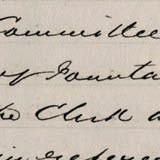 Committee
of Founta
the Clerk a